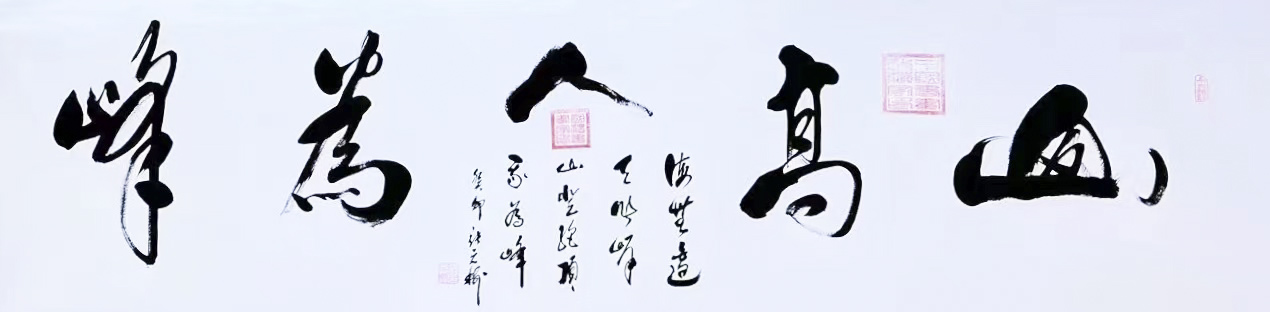 山高人為峰
海無邊
天作岸
山登絕頂
我為峰
癸卯